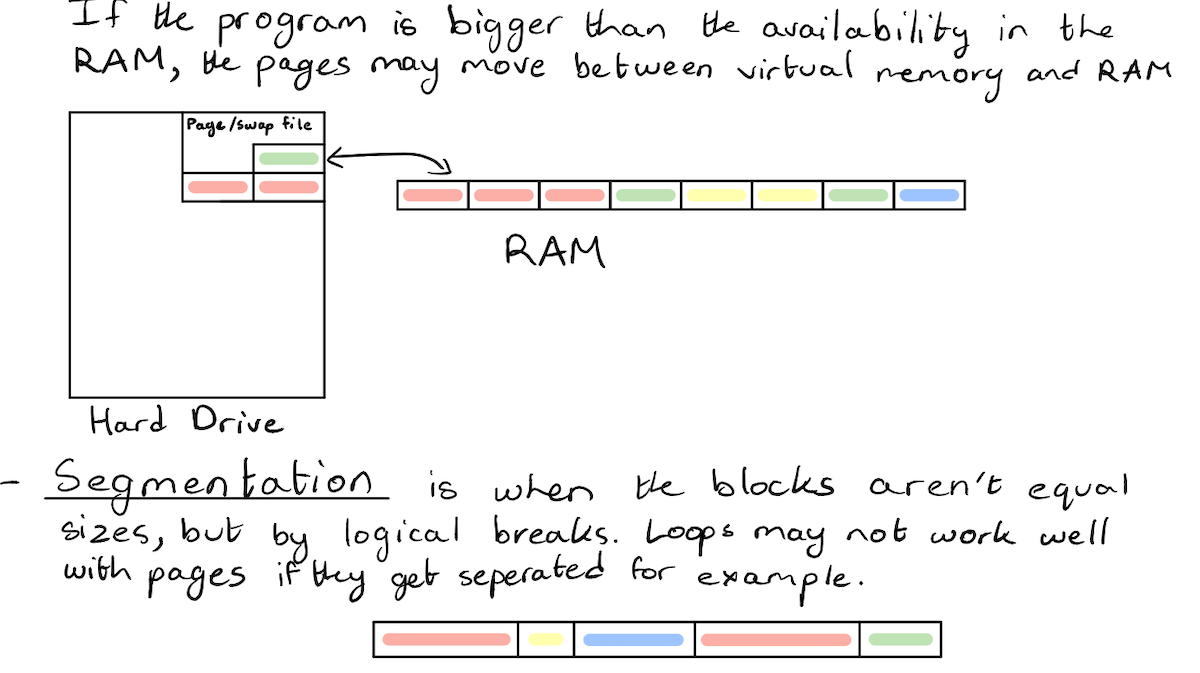 If the program is bigger than the availability in the
RAM, the pages may move between virtual memory and RAM
Page/swap file
RAM
Hard Drive
- Segmentation is when the blocks aren't equal
sizes, but by logical breaks. Loops may not work well
with pages if they get seperated for example.